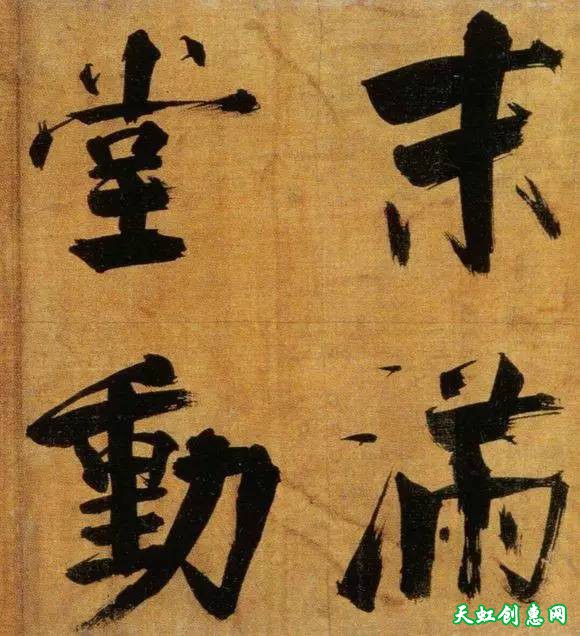 末滿
堂動
天虹创惠网